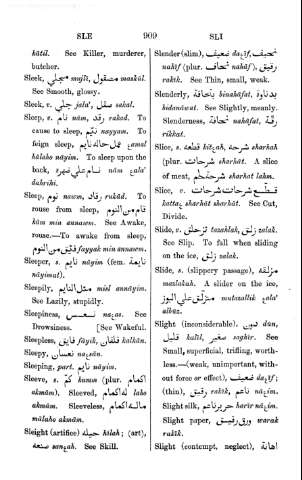 SLE 909 SLI
kātil. See Killer, murderer,
butcher.
Sleek, مجلي mujlī, مصقول maskūl.
See Smooth, glossy.
Sleek, v. جلي jala', صقل sakal.
Sleep, s. نام nām, رقد rakad. To
cause to sleep, نيّم nayyam. To
feign sleep, عمل حاله نايم عamal
hālaho nāyim. To sleep upon the
back, نام علي ضهره nām عala'
dahrihi.
Sleep, نوم nawm, رقاد rukād. To
rouse from sleep, قام من النوم
kām min annawm. See Awake,
rouse.—To awake from sleep,
فيّق من النوم fayyak min annawm.
Sleeper, s. نايم nāyim (fem. نايمة
nāyimat).
Sleepily, مثل النايم misl annāyim.
See Lazily, stupidly.
Sleepiness, s. نعس See
Drowsiness. [See Wakeful.
Sleepless, فايق fāyik, قلقان kalkān.
Sleepy, نعسان
Sleeping, part. نايم nāyim.
Sleeve, s. كم kumm (plur. اكمام
akmām). Sleeved, له اكمام laho
akmām. Sleeveless, ماله اكمام
mālaho akmām.
Sleight (artifice) حيله hīlah; (art),
صنعه See Skill.
Slender (slim), ضعيف نحيف
nahīf (plur. نحاف nahāf), رقيق
rakīk. See Thin, small, weak.
Slenderly, بنحافة binahāfat, بدناوة
bidanāwat. See Slightly, meanly.
Slenderness, نحافة nahāfat, رقّة
rikkat.
Slice, s. قطعة شرحة sharhah
(plur. شرحات sharhāt. A slice
of meat, شرحة لحم sharhat lahm.
Slice, v. قطّع شرحات شرحات
sharhāt sharhāt. See Cut,
Divide.
Slide, v. تزحلق tazahlak, زلق zalak.
See Slip. To fall when sliding
on the ice, زلق zalak.
Slide, s. (slippery passage), مزلقة
mazlakah. A slider on the ice,
متزلّق علي البوز mutazallik عala'
albūz.
Slight (inconsiderable), دون dūn,
قليل kalīl, صغير saghīr. See
Small, superficial, trifling, worth-
less.—(weak, unimportant, with-
out force or effect), ضعيف
(thin), رقيق rakīk, ناعم
Slight silk, حرير ناعم
Slight paper, ورق رقيق warak
rakīk.
Slight (contempt, neglect), اهانة